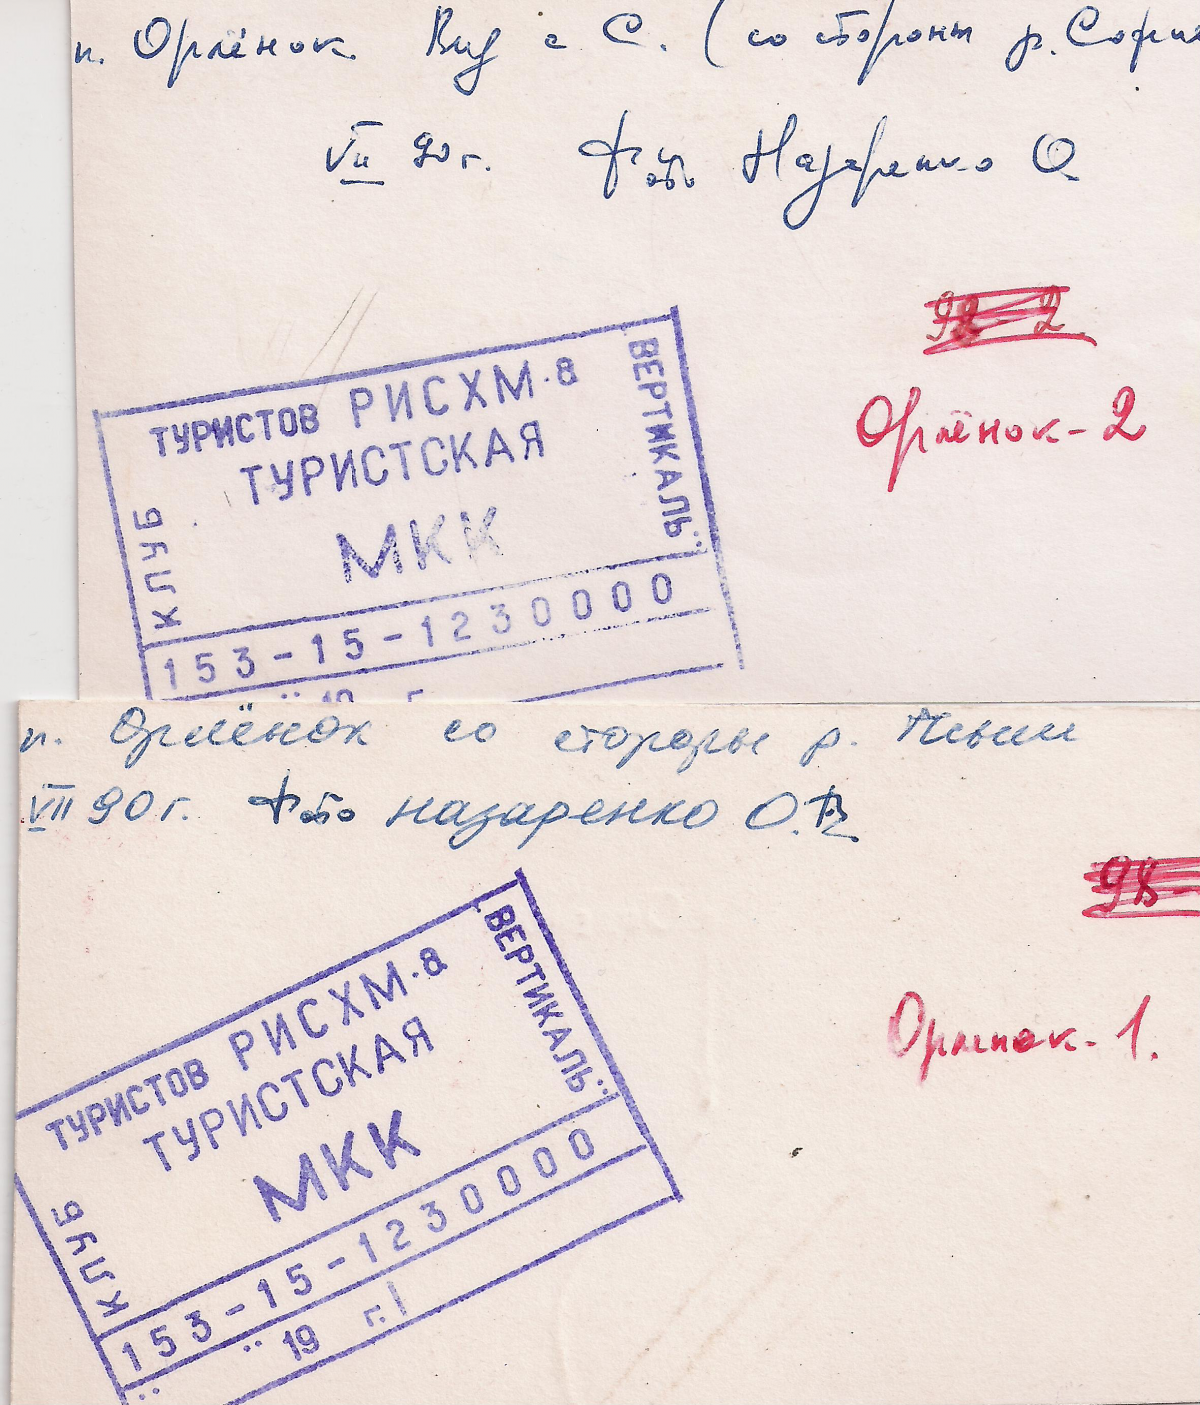 п. Орлёнок Вид с С. (со стороны р. Софии
VII 90 г. Фото Назаренко О
92-2
Орлёнок-2
КЛУБ
ТУРИСТОВ РИСХМ-а
ВЕРТИКАЛЬ"
ТУРИСТСКАЯ
МКК
153-15-1230000
" 19 г.
п. Орлёнок со стороны р. Псыш
VII 90 г. Фото Назаренко О.В.
Орленок-1.
КЛУБ
ТУРИСТОВ РИСХМ-а
ВЕРТИКАЛЬ"
ТУРИСТСКАЯ
МКК
153-15-1230000
" " 19 г.